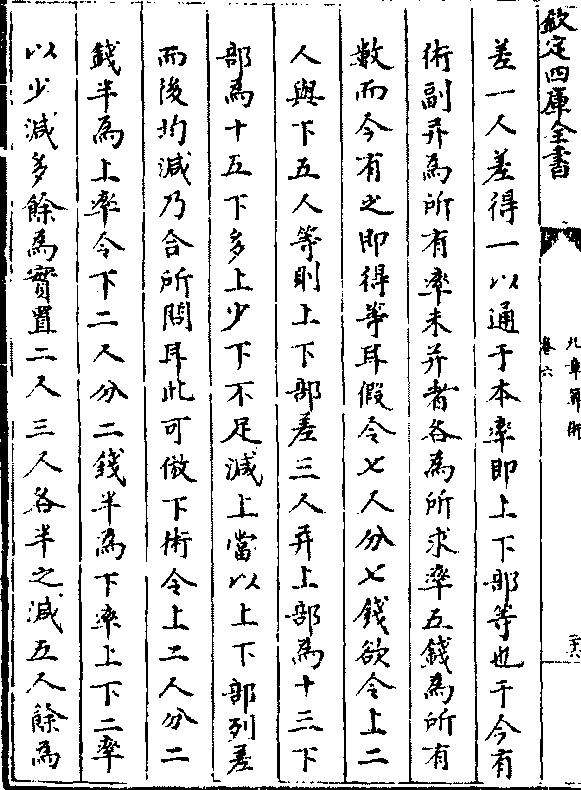 欽定四庫全書
九章算術
卷六
差一人差得一以通于本率即上下部等也于今有
術副并為所有率未并者各為所求率五錢為所有
數而今有之即得等耳假令七人分七錢欲令上二
人與下五人等則上下部差三人并上部為十三下
部為十五下多上少下不足減上當以上下部列差
而後均減乃合所問耳此可倣下術令上二人分二
錢半為上率令下二人分二錢半為下率上下二率
以少減多餘為實置二人三人各半之減五人餘為